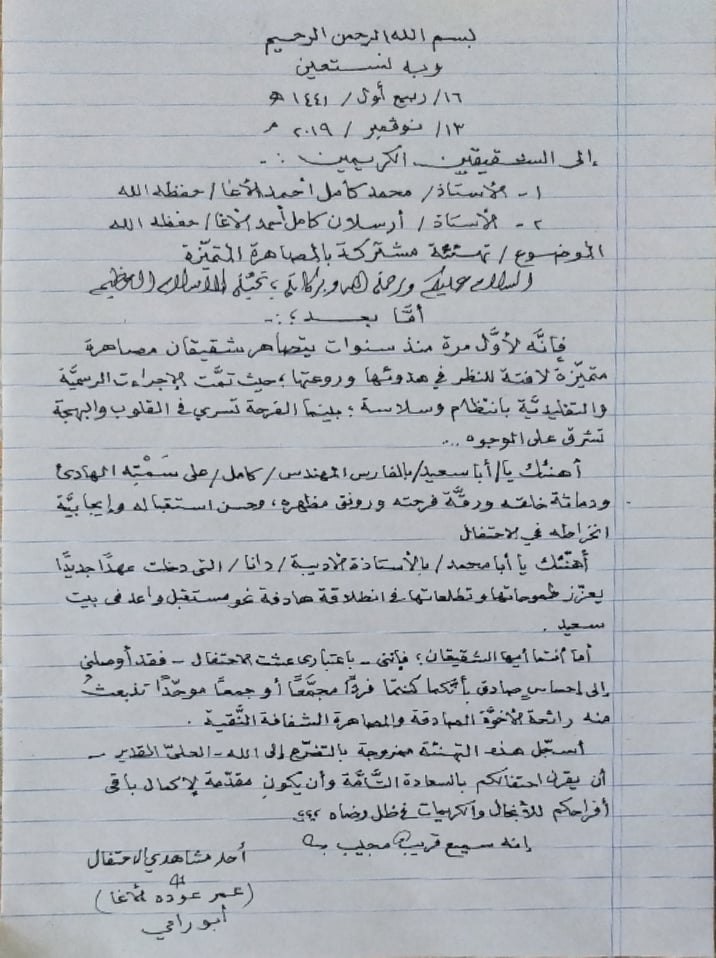 بسم الله الرحمن الرحيم
وبه نستعين
١٦/ ربيع أول / ١٤٤١ هـ
١٣/ نوفمبر / ٢٠١٩ م
إلى الشقيقين الكريمين :-
١- الأستاذ/ محمد كامل أحمد الأغا/ حفظه الله
٢- الأستاذ / أرسلان كامل أحمد الأغا/ حفظه الله
الموضوع / تهنئة مشتركة بالمصاهرة المتميّزة
السلام عليكم ورحمة الله وبركاته ؛ تحيّة الإسلام العظيم
أمّا بعد ؛ :-
فإنَّه لأوَّل مرة منذ سنوات يتصاهر شقيقان مصاهرة
متميّزة لافتة للنظر في هدوئها وروعتها ؛ حيث تمَّت الإجراءات الرسميَّة
والتقليديَّة بانتظام وسلاسة ؛ بينما الفرحة تسري في القلوب والبهجة
تشرق على الوجوه ...
أهنئك يا/ أبا سعيد/ بالفارس المهندس/ كامل/ على سَمْتِه الهادئ
ودماثة خلقه ورقَّة فرحته ورونق مظهره، وحسن استقباله وإيجابيَّة
انخراطه في الاحتفال
أهنّئك يا أبا محمد/ بالأستاذة الأديبة/ دانا/ التي دخلت عهدًا جديدًا
يعزّز طموحاتها وتطلعاتها في انطلاقة هادفة نحو مستقبل واعد في بيت
سعيد .
أما أنتما أيها الشقيقان ؛ فإنني - باعتباري عشت الاحتفال - فقد أوصلني
إلى إحساس صادق بأنّكما كنتما فردًا مجمَّعًا أو جمعًا موحّدًا تنبعثُ
منه رائحة الأخوَّة الصادقة والمصاهرة الشفافة النَّقية .
أسجّل هذه التهنئة ممزوجة بالتضرّع إلى الله - العليّ القدير -
أن يقرن احتفالكم بالسعادة التَّامَّة وأن يكون مقدّمة لإكمال باقي
أفراحكم للأنجال والكريمات في ظل رضاه
إنه سميع قريب مجيب
أحد مشاهدي الاحتفال
(عمر عوده الأغا)
أبو رامي